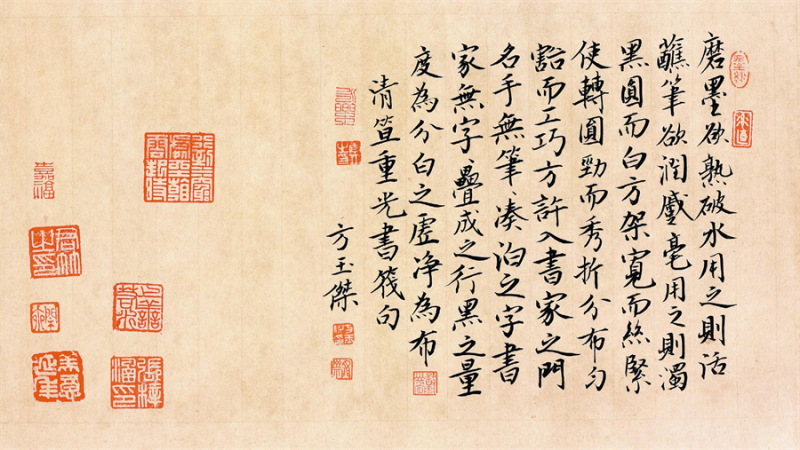 磨墨欲熟破水用之則活
蘸筆欲潤蹙毫用之則濁
黑圓而白方架寬而絲緊
使轉圓勁而秀折分布勻
豁而工巧方許入書家之門
名手無筆湊泊之字書
家無字疊成之行黑之量
度為分白之虛净為布
清笪重光書筏句
方玉傑